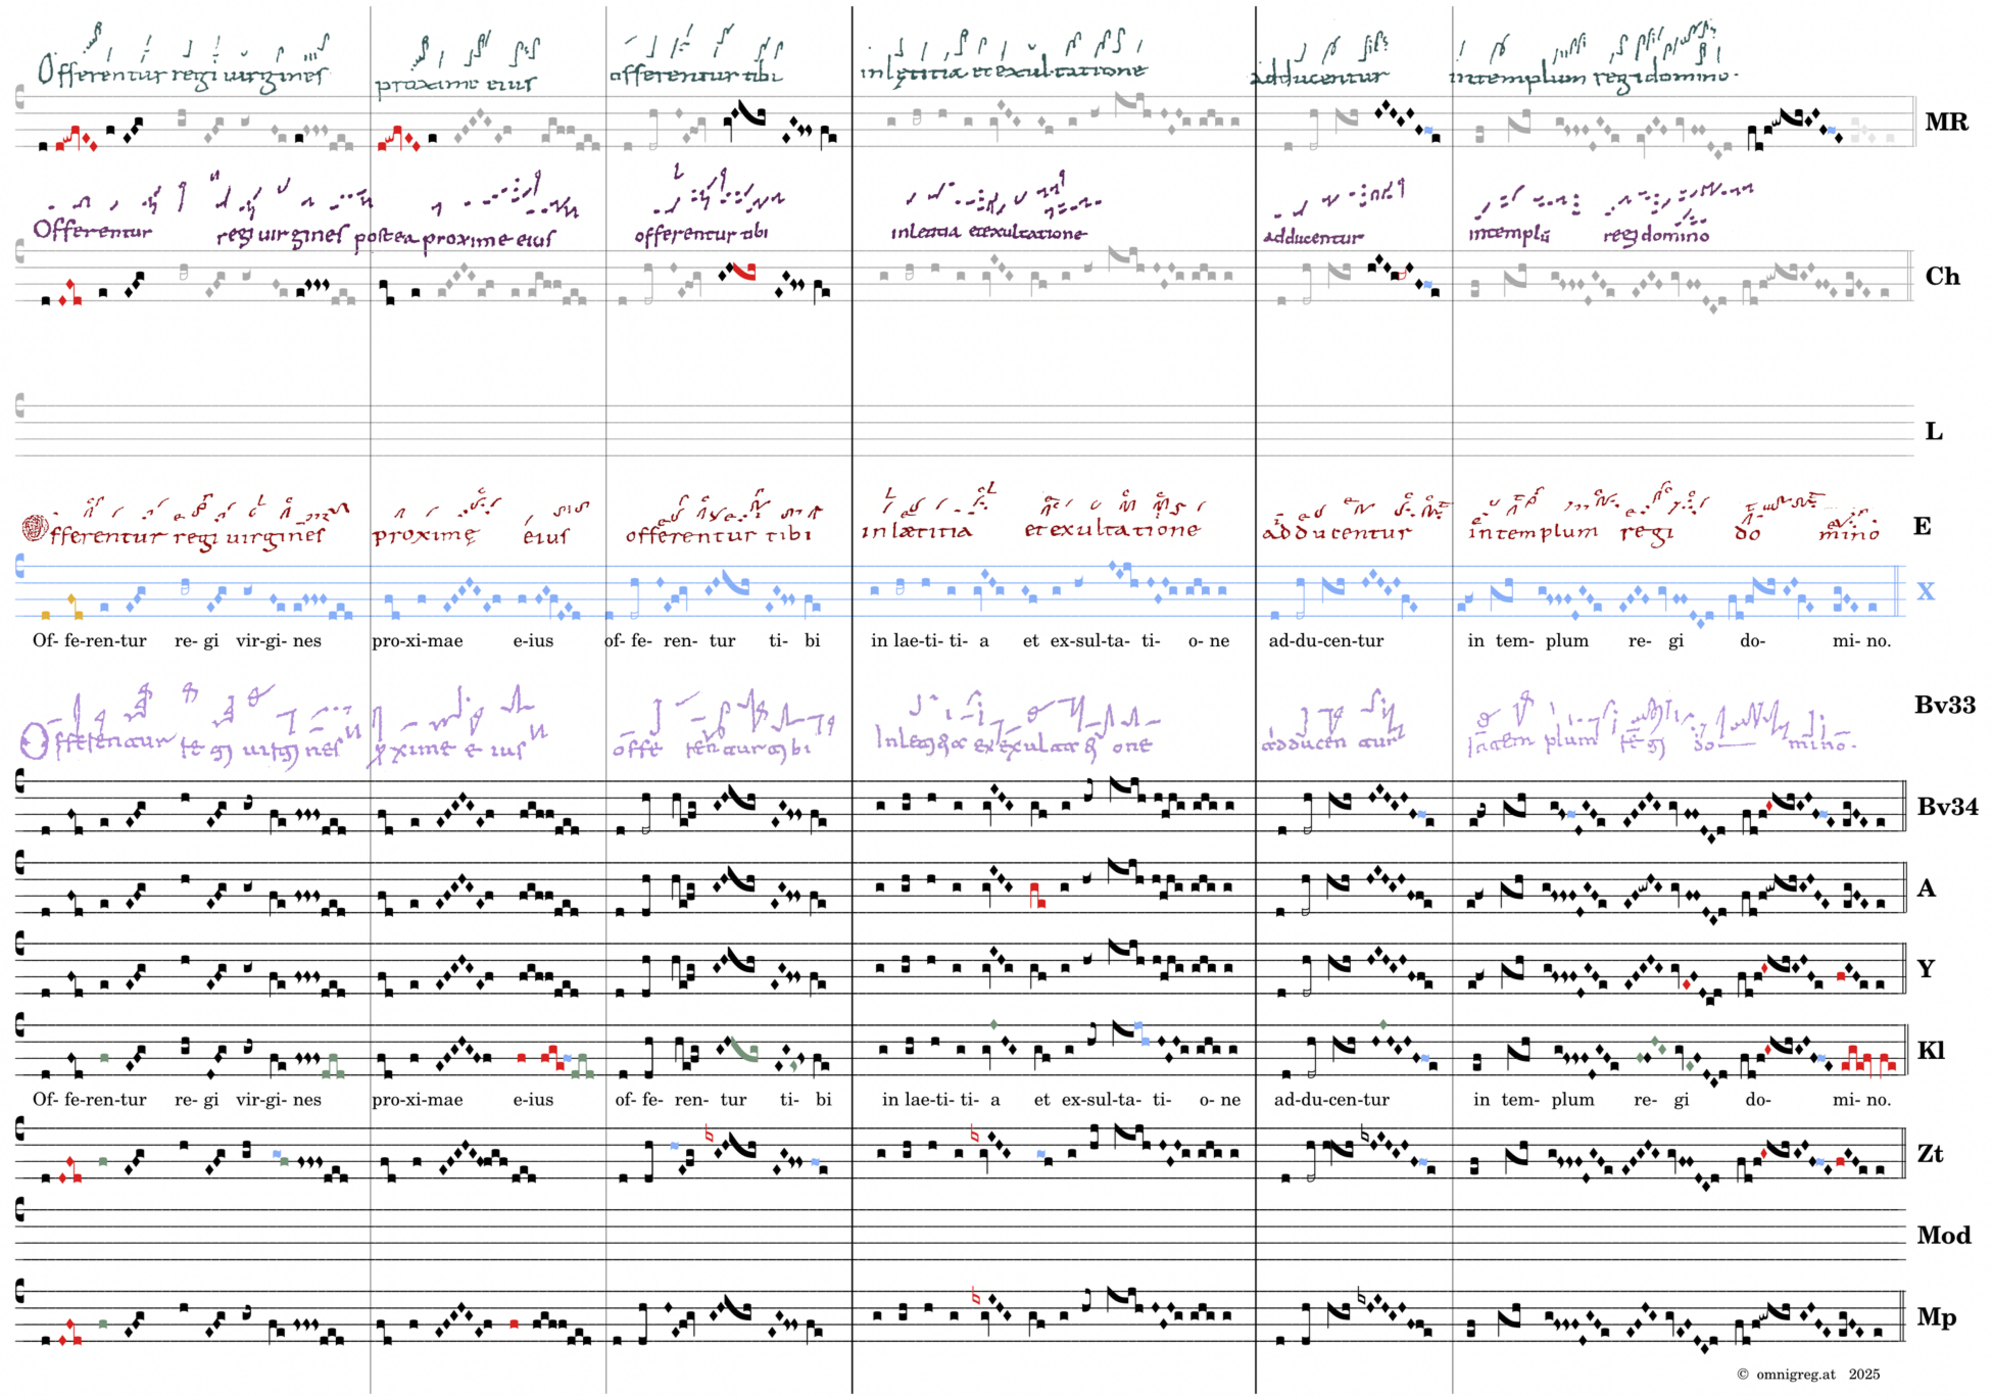 Offerentur regi uirgines proxime eius offerentur tibi inlętitia etexultatione adducentur intemplum regi domino.
MR
Offerentur regi uirgines postea proxime eius offerentur tibi inletitia etexultatione adducentur intemplū regi domino
Ch
L
Offerentur regi uirgines proximę eius offerentur tibi inlætitia etexultatione adducentur intemplum regi do mino
E
X
Of- fe-ren-tur re- gi vir-gi- nes pro-xi-mae e-ius of- fe- ren- tur ti- bi in lae-ti- ti- a et ex-sul-ta- ti- o- ne ad-du-cen-tur in tem- plum re- gi do- mi- no.
Bv33
Bv34
A
Y
Kl
Of- fe-ren-tur re- gi vir-gi- nes pro-xi-mae e-ius of- fe- ren- tur ti- bi in lae-ti- ti- a et ex-sul-ta- ti- o- ne ad-du-cen-tur in tem- plum re- gi do- mi- no.
Zt
Mod
Mp
© omnigreg.at 2025